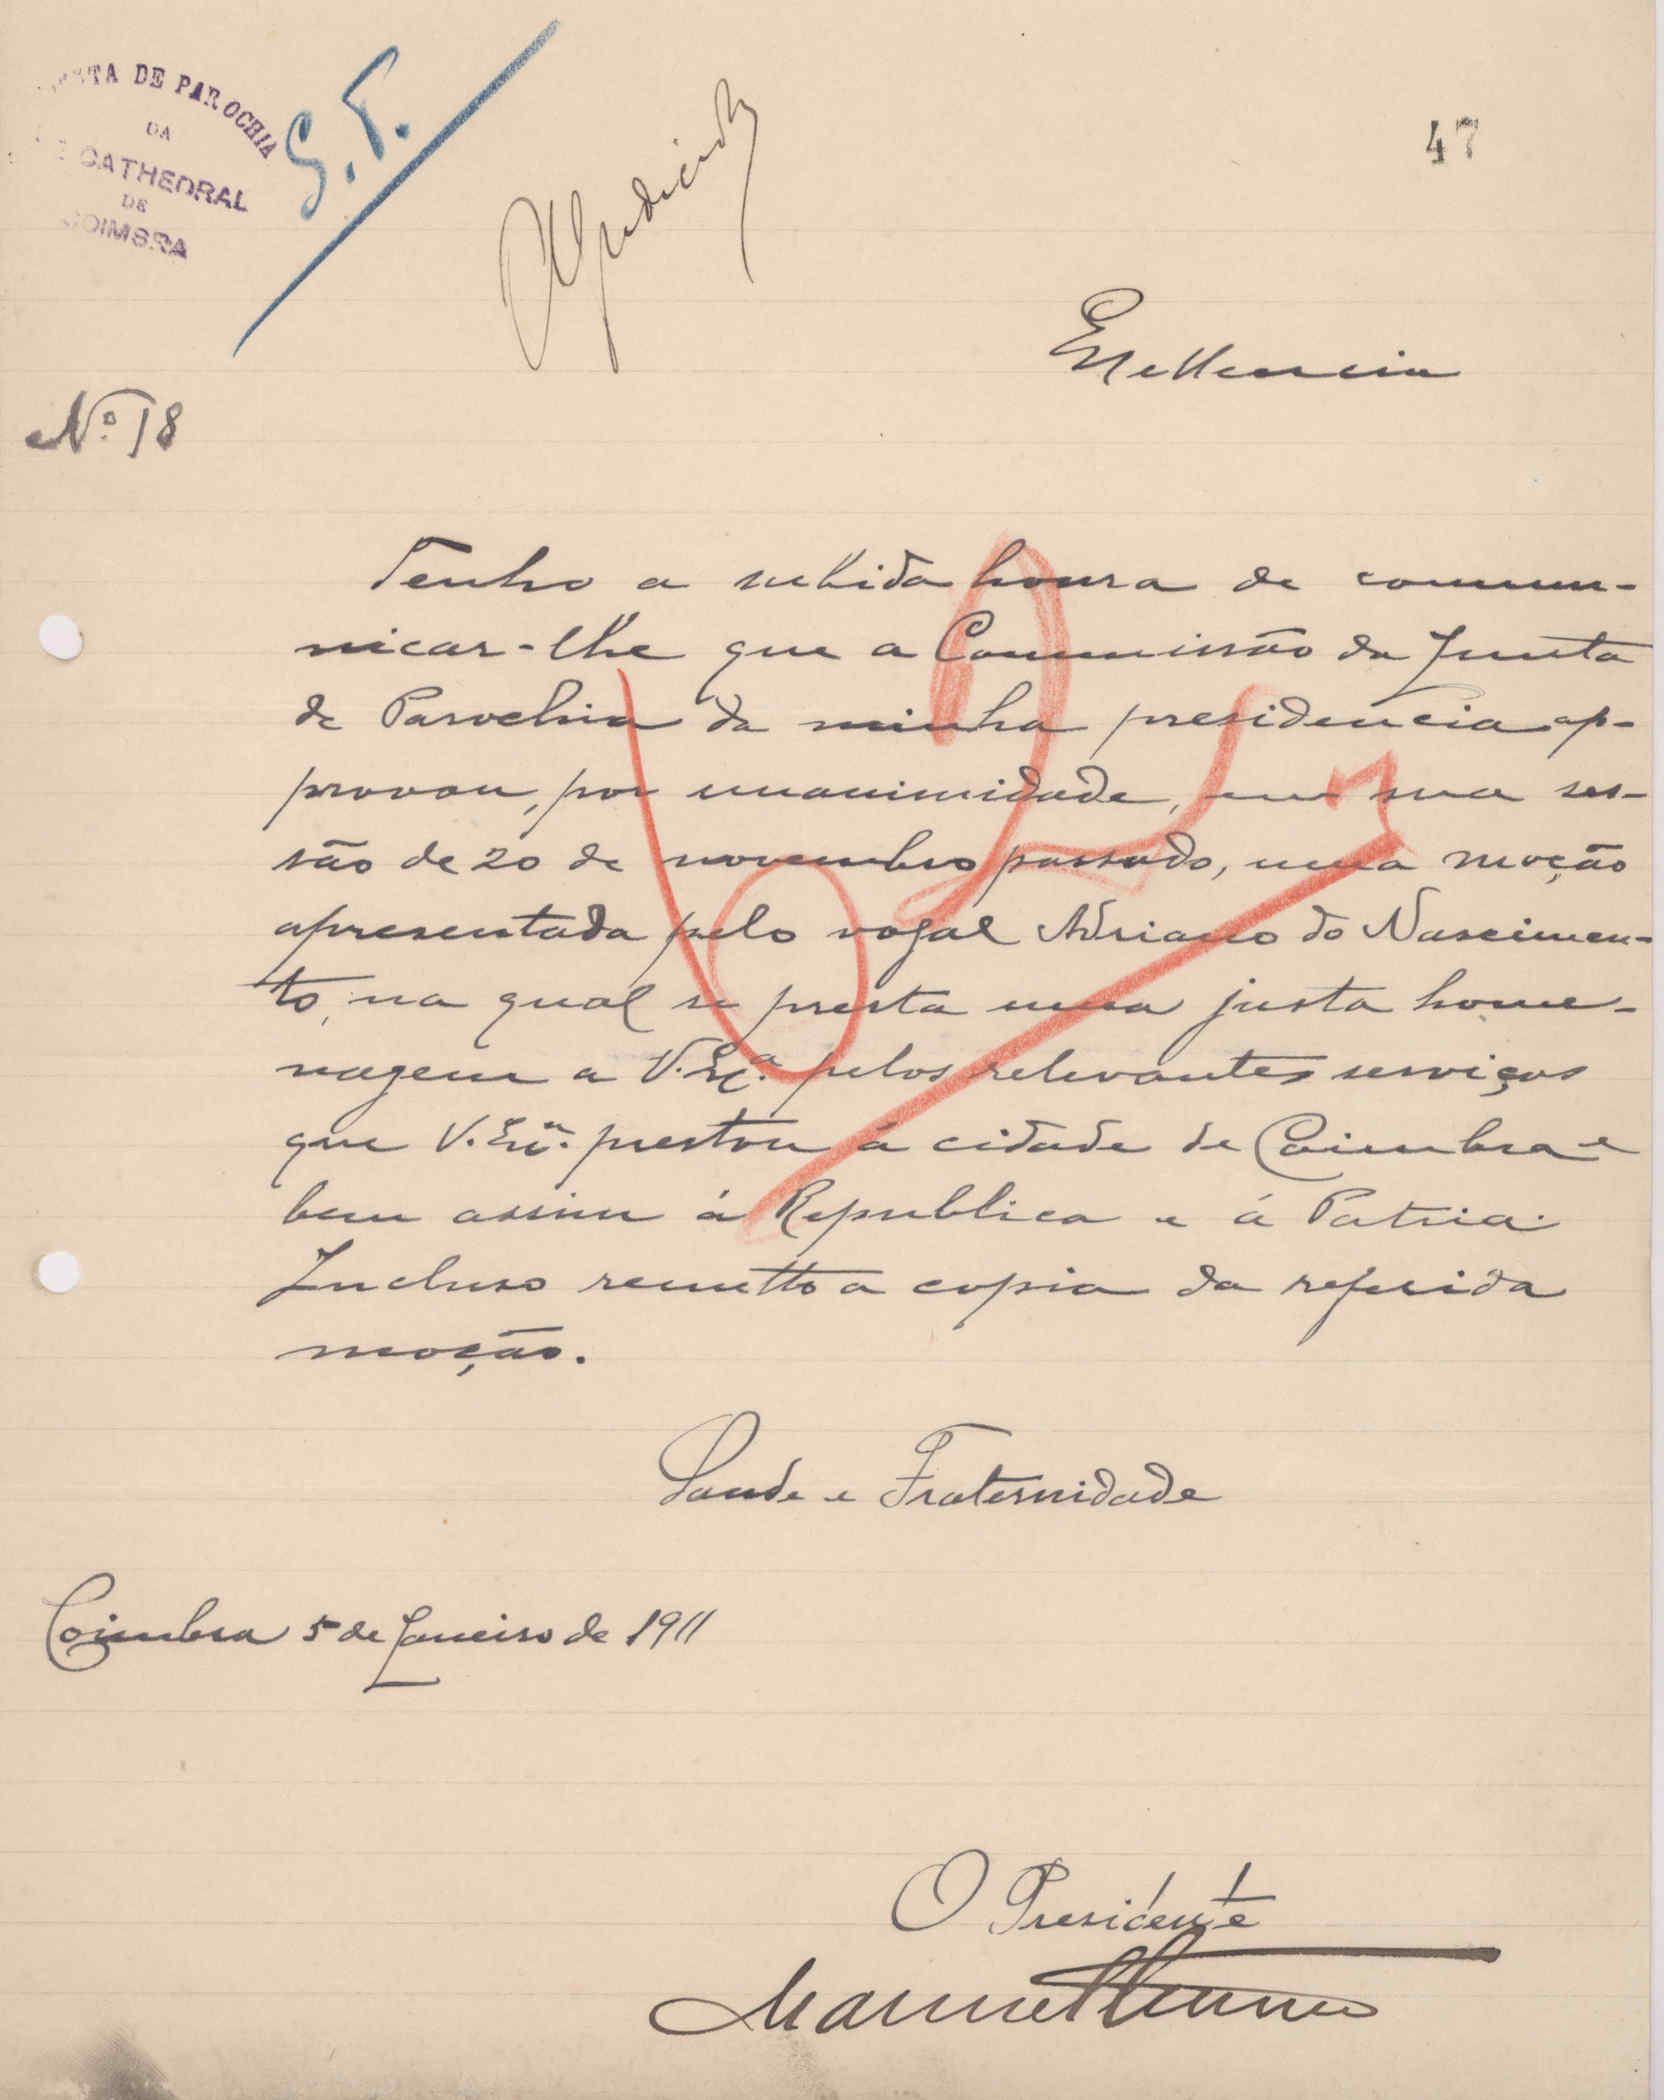 JUNTA DE PAROCHIA
DA
SÉ CATHEDRAL
DE
COIMBRA
G. P.
Agradecida
47
Excellencia
Nº 18
Tenho a subida honra de commu-
nicar-lhe que a Commissão da Junta
de Parochia da minha presidencia ap-
provou, por unanimidade, em sua ses-
são de 20 de novembro passado, uma moção
apresentada pelo vogal Adriano do Nascimen-
to, na qual se presta uma justa home-
nagem a V. Exª. pelos relevantes serviços
que V. Exª. prestou á cidade de Coimbra e
bem assim á Republica e á Patria.
Incluso remetto a copia da referida
moção.
Saude e Fraternidade
Coimbra 5 de Janeiro de 1911
O Presidente
Manuel